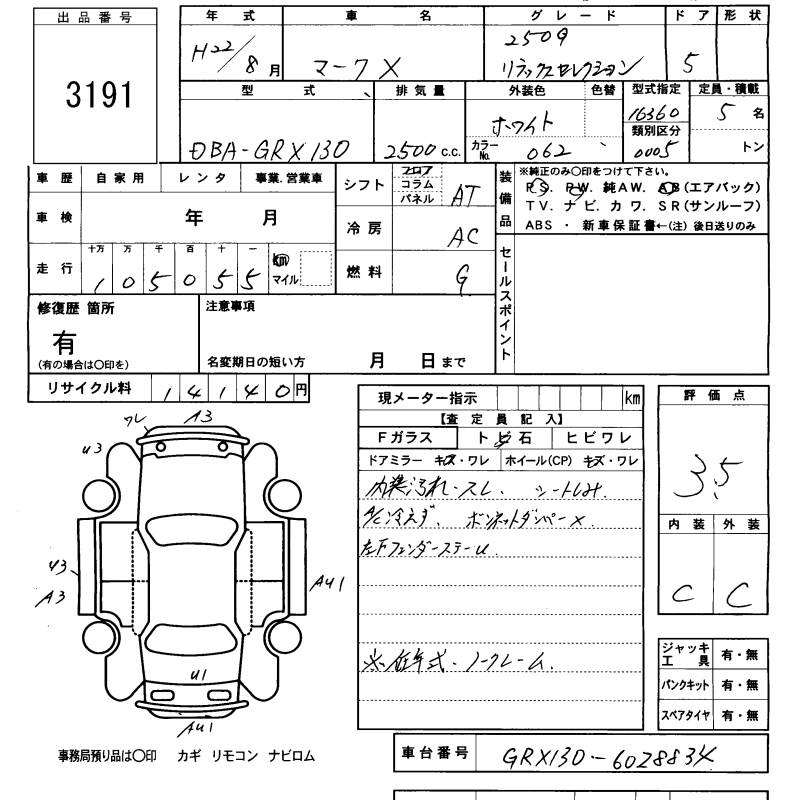 出品番号
3191
年式 車名 グレード ドア 形状
H22/8月 マークX 250G リラックスセレクション 5
型式 排気量 外装色 色替 型式指定 定員・積載
DBA-GRX130 2500c.c. ホワイト 16360 5名
カラーNo. 062 類別区分 0005 トン
車歴 自家用 レンタ 事業.営業車
車検 年 月
走行 十万 万 千 百 十 一 km マイル
105055
シフト フロア コラム パネル AT
冷房 AC
燃料 G
装備品
※純正のみ〇印をつけて下さい。
PS. PW. 純AW. AB(エアバック)
TV. ナビ. カワ. SR(サンルーフ)
ABS ・ 新車保証書←(注)後日送りのみ
セールスポイント
修復歴 箇所
有
(有の場合は〇印を)
注意事項
名変期日の短い方 月 日まで
リサイクル料 14140円
現メーター指示 km
【査定員記入】
Fガラス トビ石 ヒビワレ
ドアミラー キズ・ワレ ホイール(CP) キズ・ワレ
内装汚れ・スレ、シートしみ
A/C冷えず、ボンネットダンパーX.
左Fフェンダーステーu
※低年式・ノークレーム.
評価点
3.5
内装 外装
C C
ワレ A3
U3
U3
A3
AU1
U1
AU1
ジャッキ工具 有・無
パンクキット 有・無
スペアタイヤ 有・無
事務局預り品は〇印 カギ リモコン ナビロム
車台番号 GRX130-6028834